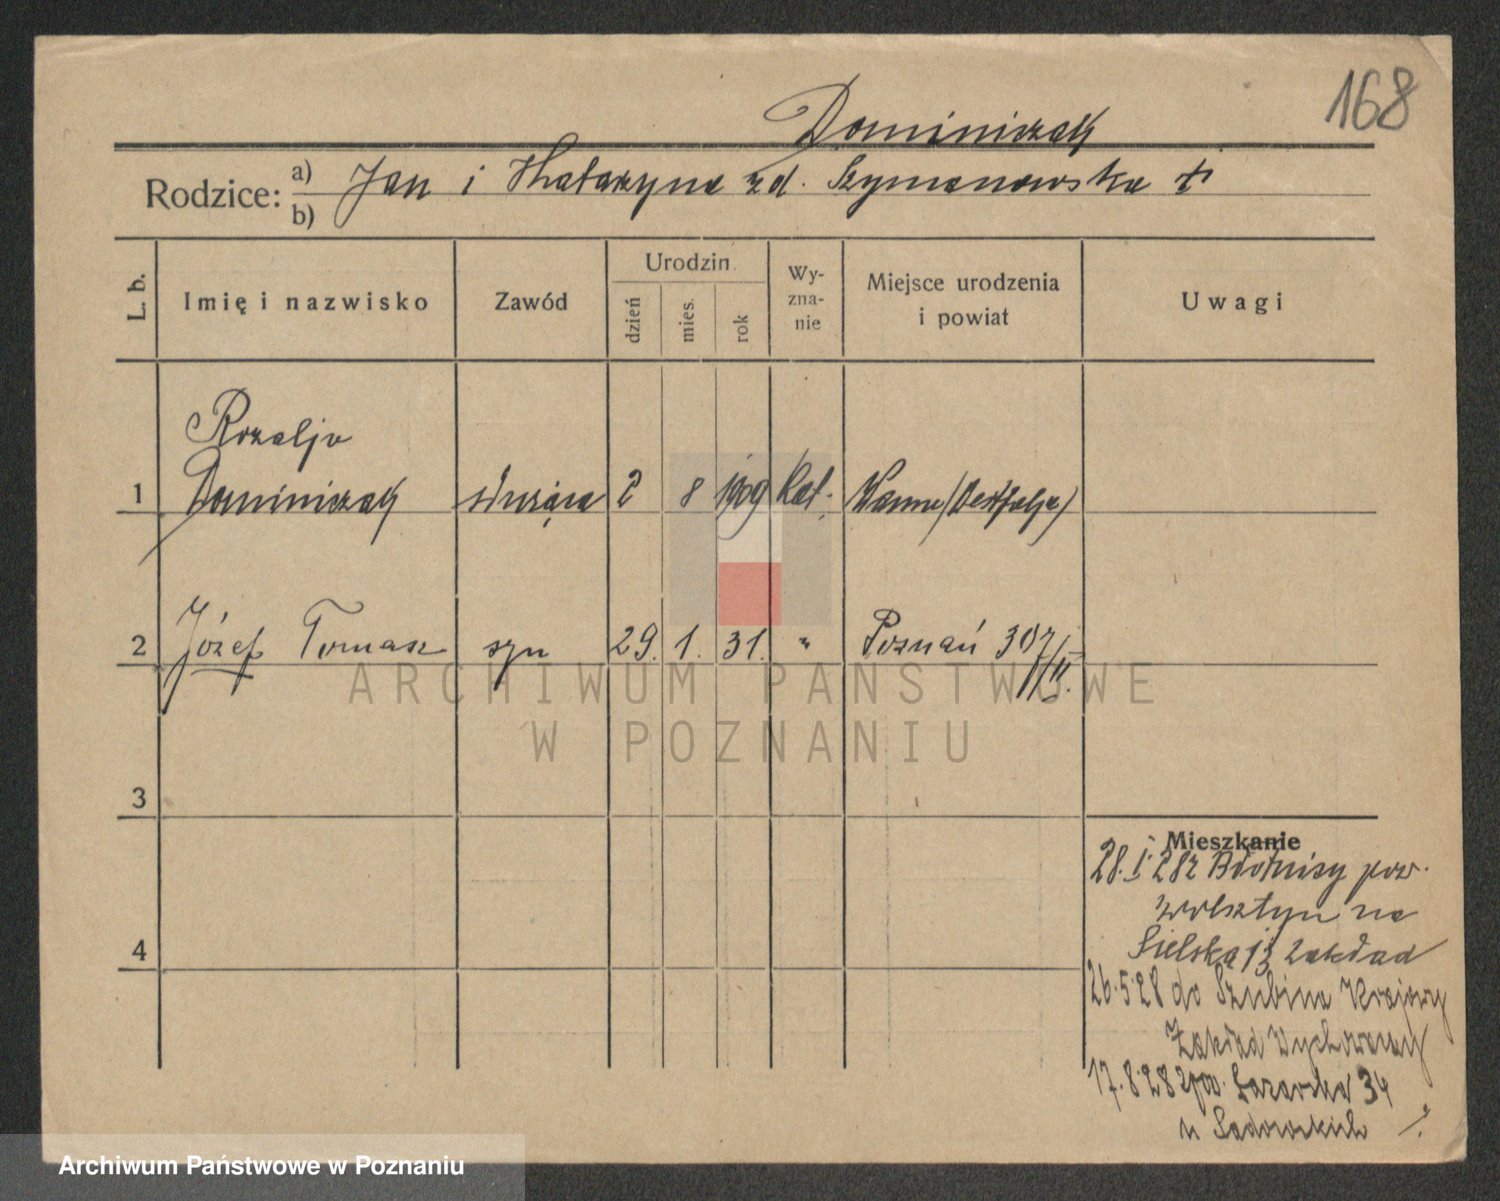 168
Dominiczak
Rodzice: a) Jan i Katarzyna zd. Szymanowska +
b)
L. b. Imię i nazwisko Zawód Urodzin. dzień mies. rok Wyznanie Miejsce urodzenia i powiat Uwagi
Rozalja
1 Dominiczak służąca 2 8 1909 kat. Wanne (Westfalja)
2 Józef Tomasz syn 29. 1. 31. " Poznań 307/II.
3
Mieszkanie
28. I. 28 z Błotnicy pow.
Wolsztyn na
4 Sielska 13 Zakład
26.5.28 do Szubina Krajowy
Zakład Wychowawczy
17.8.28 Łazarska 34
u Sadowskich
ARCHIWUM PAŃSTWOWE
W POZNANIU
Archiwum Państwowe w Poznaniu